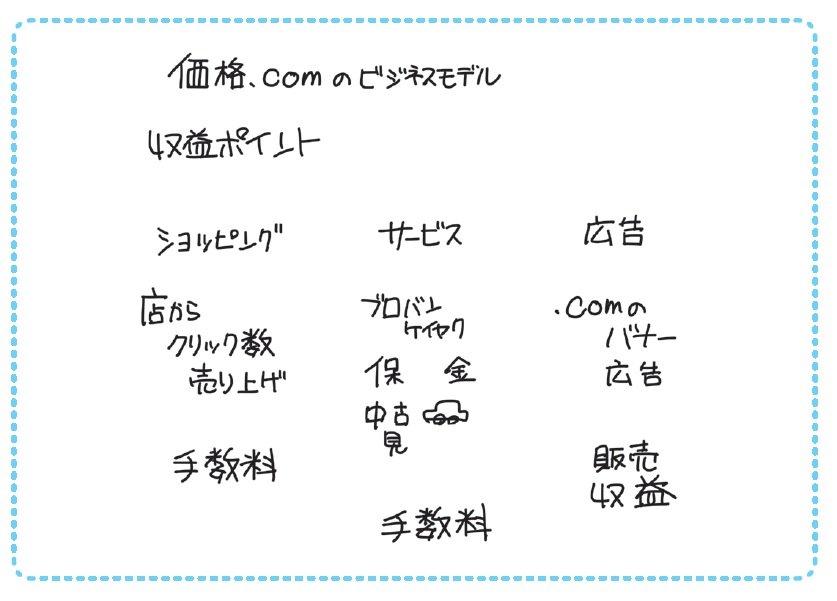 価格.comのビジネスモデル
収益ポイント
ショッピング
店から
クリック数
売り上げ
手数料
サービス
ブロバン
ケイヤク
保 金
中古
見
手数料
広告
.comの
バナー
広告
販売
収益